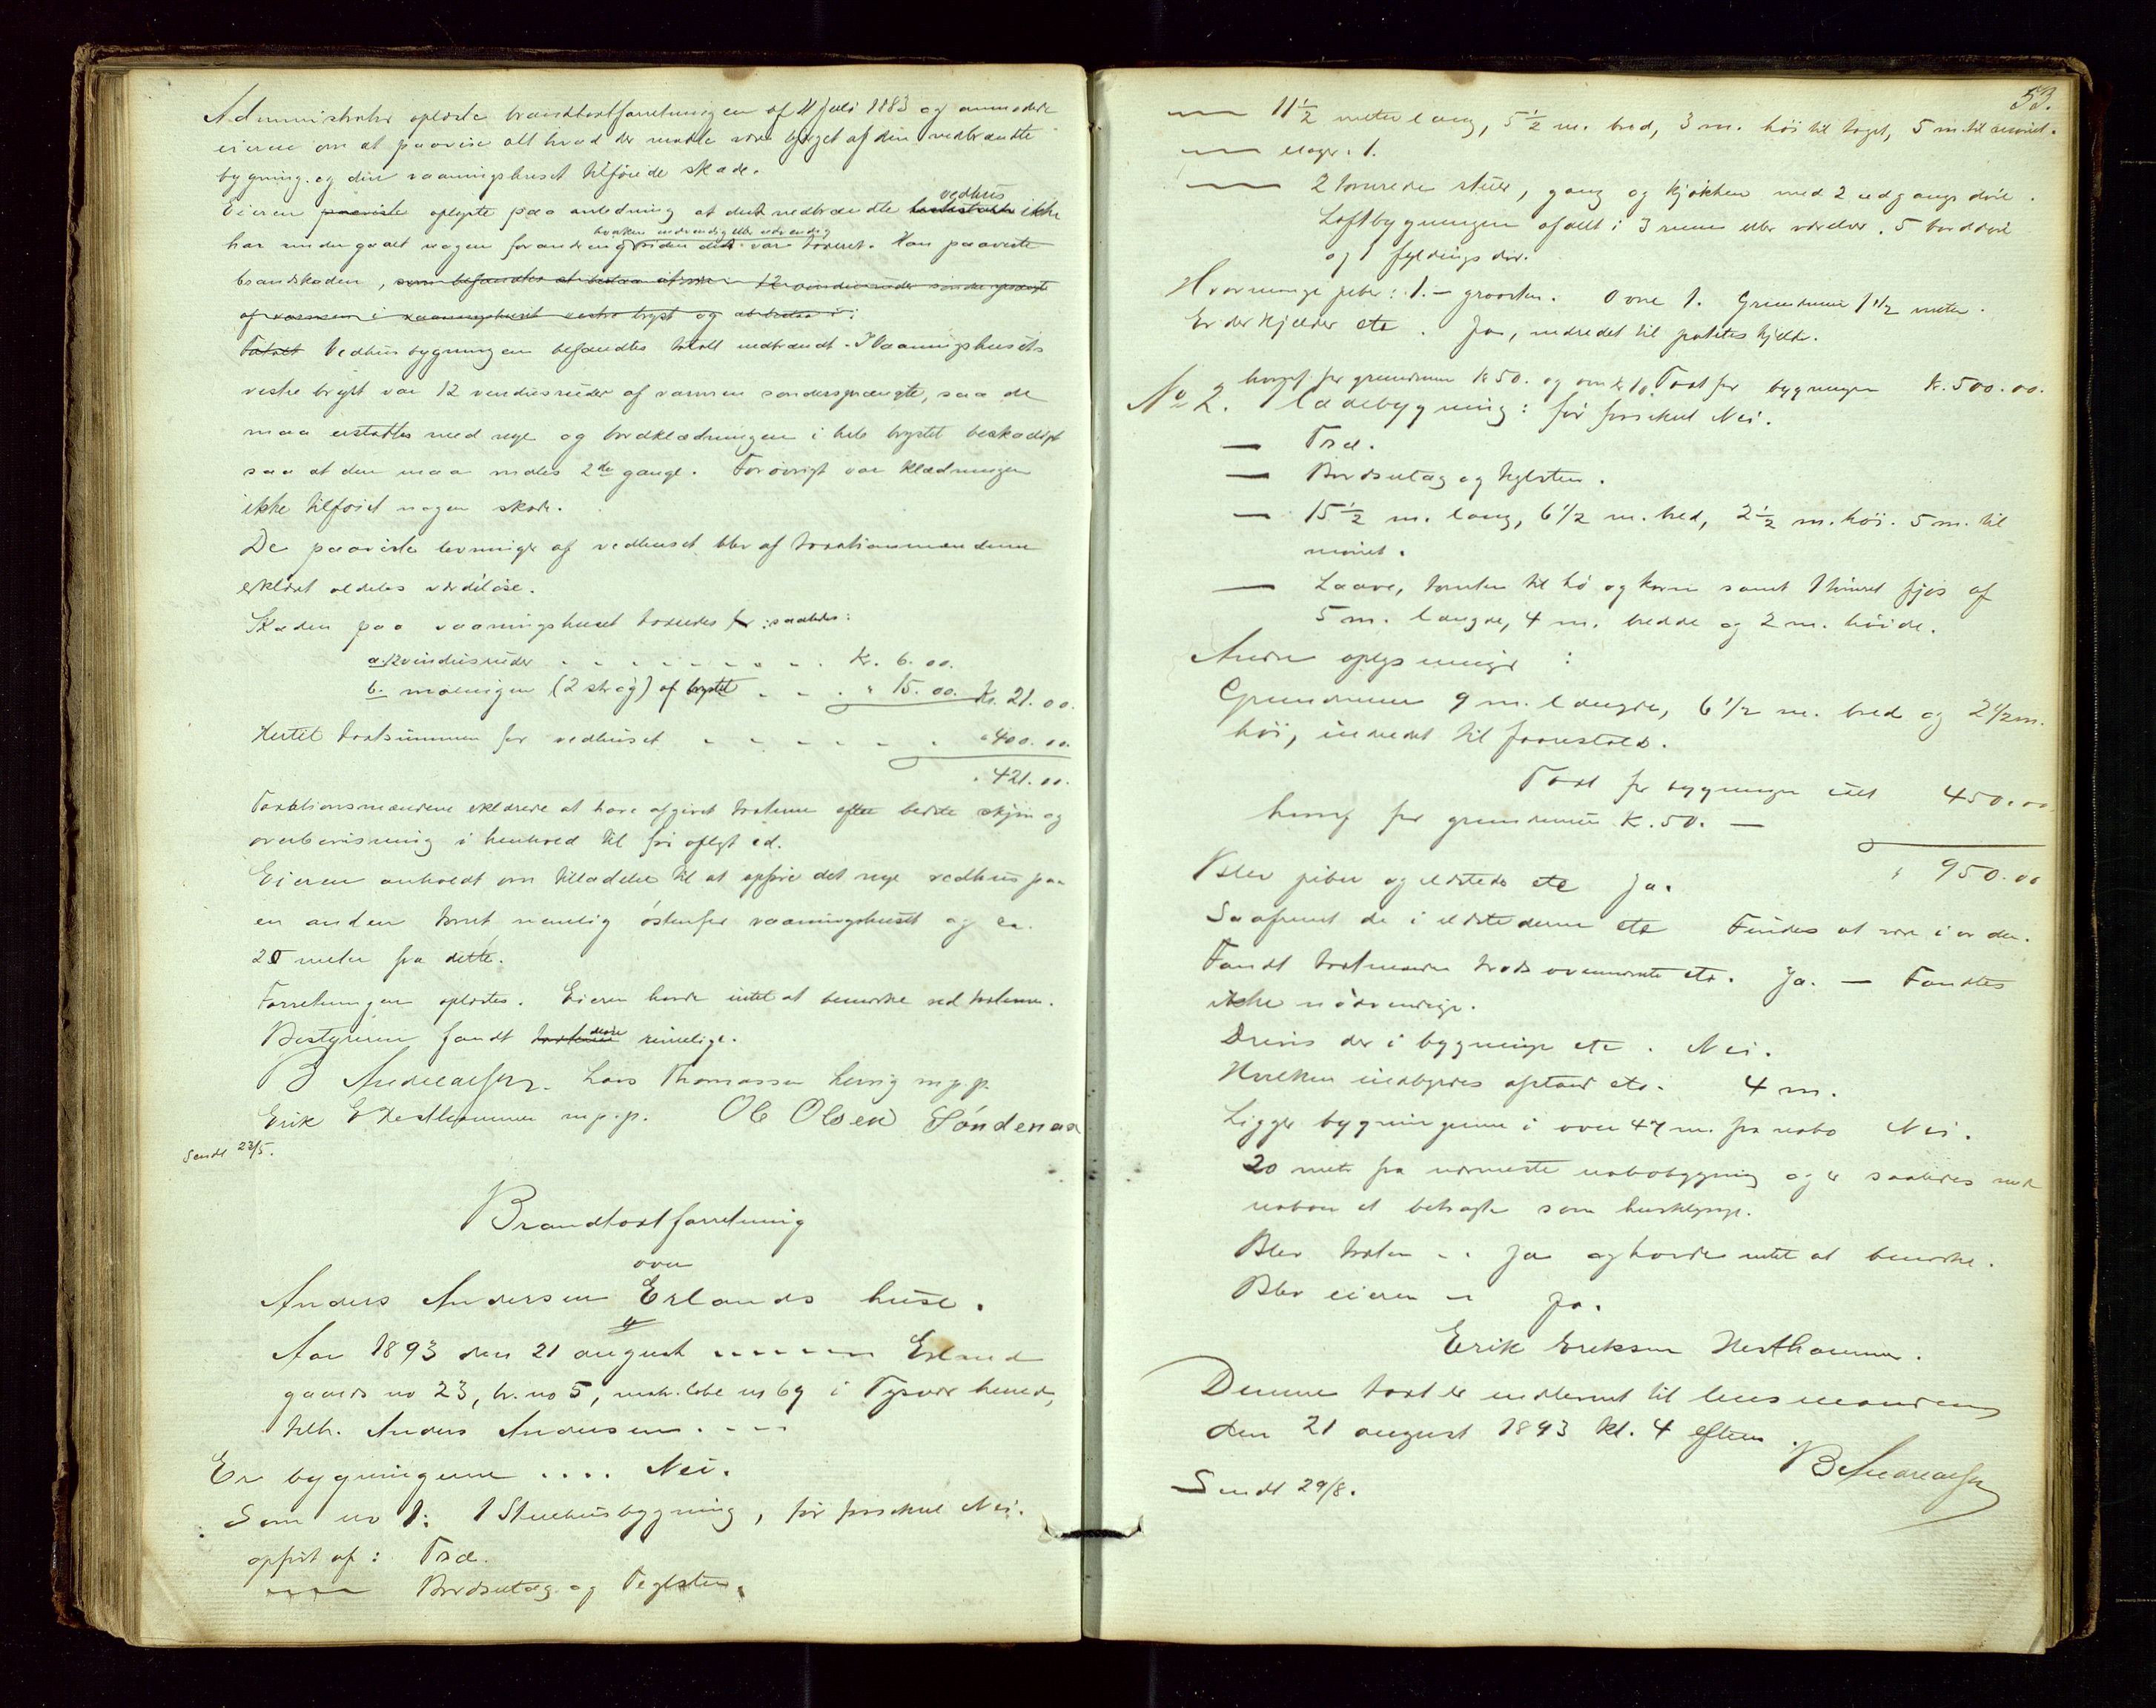 Administrator oplæste brandtaxtforretningen af 11 juli 1883 og anmodede
eieren om at paavise alt hvad der maatte være bjerget af den nedbrændte
bygning og den vaaningshuset tilföiede skade.
Eieren paaviste oplyste paa anledning at det nedbrændte vedhus ikke
har undergaaet nogen forandring hverken indvendig eller udvendig siden det var taxeret. Han paaviste
brandskaden, som befandtes at bestaa i 12 vindusruder söndersprængte
af varmen i vaaningshusets vestre bryst og
Totalt Vedhusbygningen befandtes totall nedbrændt. I Vaaningshusets
vestre bryst var 12 vindusruder af varmen söndersprængte, saa de
maa erstattes med nye og bordklædningen i hele brystet beskadiget
saa at den maa males 2de gange. Forövrigt var klædningen
ikke tilföiet nogen skade.
De paaviste levninger af vedhuset blev af taxtationsmændene
erklæret aldeles værdilöse.
Skaden paa vaaningshuset taxeredes for saaledes:
a. 12 vindusruder . . . . . . . . Kr. 6.00.
b. malningen (2 strög) af brystet . . . " 15.00. Kr. 21.00.
Hertil taxtsummen for vedhuset . . . . . . . " 400.00.
" 421.00.
Taxationsmændene erklærede at have afgivet taxterne efter bedste skjön og
overbevisning i henhold til för aflagt ed.
Eieren anholdt om tilladelse til at opföre det nye vedhus paa
en anden tomt nemlig östenfor vaaningshuset og ca.
20 meter fra dette.
Forretningen oplæstes. Eieren havde intet at bemærke ved taxterne.
Bestyreren fandt taxterne disse rimelige.
B Andreassen. Lars Thomassen Lervig m.p.p.
Erik E Hesthammer m.p.p. Ole Olsen Söndenaa
Sendt 23/5.
Brandtaxtforretning
over
Anders Andersen Erlands huse.
Aar 1893 den 21 august ------ Erland
gaards no 23, br. no 5, matr. löbe no 69 i Tysvær herred,
tilh. Anders Andersen . - -
Er bygningerne .... Nei.
Som no 1: 1 Stuehusbygning, för forsikret Nei.
opfört af: Træ.
---- Bordsutag og Teglsten.
53.
--- 11½ meter lang, 5½ m. bred, 3 m. höi til taget, 5 m. til mönet.
--- etager. 1.
--- 2 tömrede stuer, gang og kjökken med 2 udgangsdöre.
Loftbygningen afdelt i 3 rum eller værelser. 5 borddöre
og 1 fyldingsdör.
Hvormange piber: 1. - graasten. Ovne 1. Grundmur 1½ meter.
Er der kjælder etc. Ja, indredet til potetes kjelder.
hvoraf for grundmur K 50. og ovn k 10. Taxt for bygningen Kr. 500.00.
No 2. 1 ladebygning: för forsikret Nei.
— Træ.
— Bordsutag og teglsten.
— 15½ m. lang, 6½ m. bred, 2½ m. höi. 5 m. til
mönet.
— Laave, tomter til hö og korn samt 1 tömret fjös af
5 m. længde, 4 m. bredde og 2 m. höide.
Andre oplysninger :
Grundmur 9 m. længde, 6½ m. bred og 2½ m.
höi, indredet til faarestald.
Taxt for bygningen idet 450.00
hvoraf for grundmuren K. 50. —
" 950.00
Blev piber og ildsteder etc Ja.
Saafremt de i ildstederne etc Findes at være i orden.
Fandt taxtmændene trods ovennævnte etc. Ja. — Fandtes
ikke nödvendige.
Drives der i bygninger etc. Nei.
Hvilken indbyrdes afstand etc. 4 m.
Ligger bygningerne i over 47 m. fra nabo Nei.
20 meter fra nærmeste nabobygning og er saaledes med
naboen at betragte som husklynge.
Blev taxten .. Ja og havde intet at bemærke.
Blev eieren - Ja.
Erik Eriksen Hesthammer.
Denne taxt er indleveret til lensmanden
den 21 august 1893 kl. 4 efterm.
B Andreassen
Sendt 29/8.